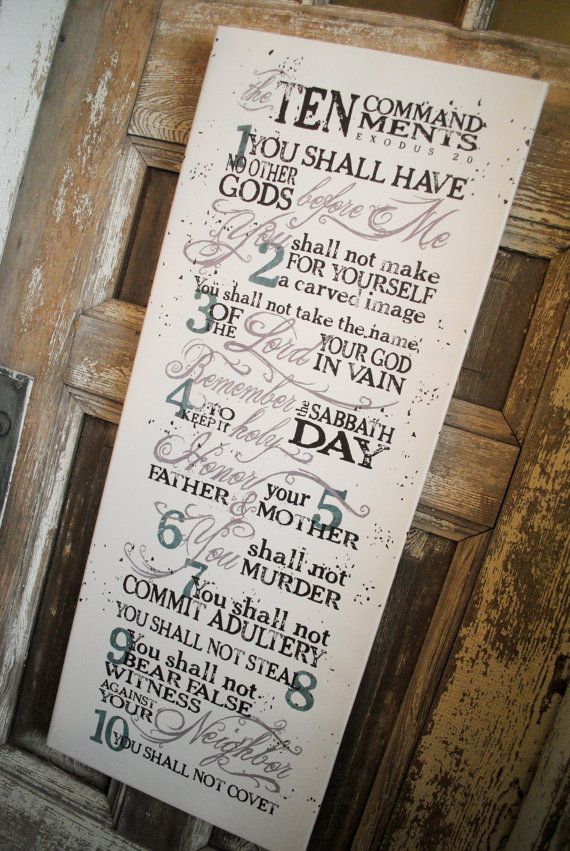 the TEN COMMANDMENTS
EXODUS 20
1 YOU SHALL HAVE
NO OTHER
GODS before Me
You shall not make
2 FOR YOURSELF
a carved image
You shall not take the name
3 OF THE Lord YOUR GOD
IN VAIN
Remember the SABBATH
DAY
4 TO KEEP IT holy
Honor your 5
FATHER & MOTHER
6 You shall not
MURDER
7 You shall not
COMMIT ADULTERY
YOU SHALL NOT STEAL 8
9 You shall not
BEAR FALSE
WITNESS
AGAINST
YOUR Neighbor
10 YOU SHALL NOT COVET